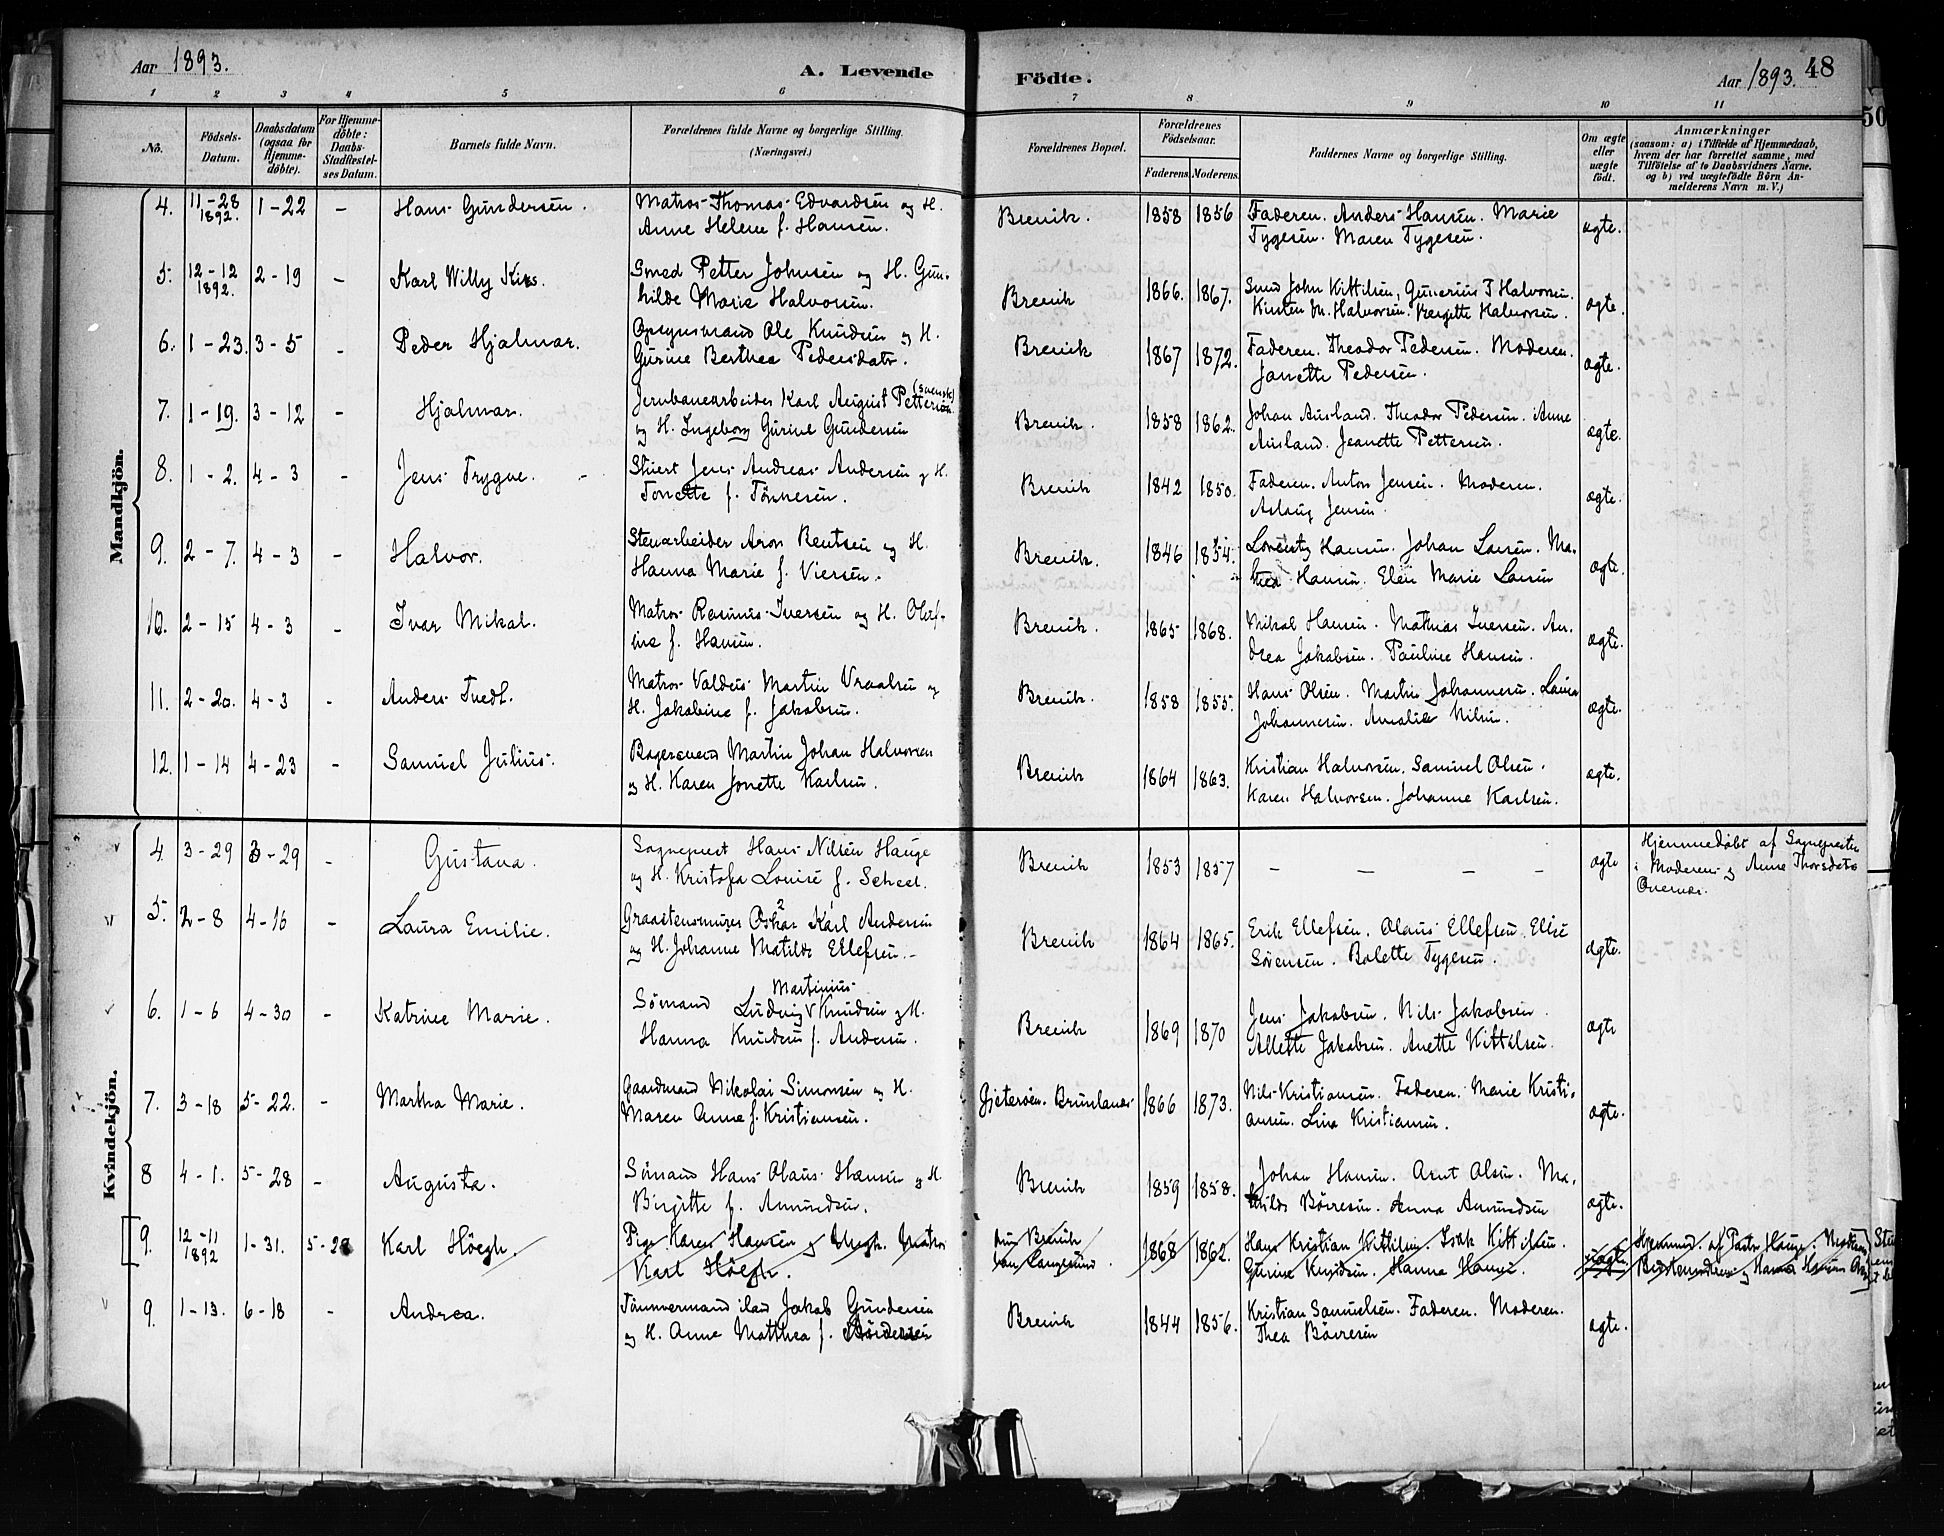 Aar 1893.
A. Levende Födte.
Aar 1893. 48
50
1 2 3 4 5 6 7 8 9 10 11
No.
Födsels-
Datum.
Daabsdatum
(ogsaa for
Hjemme-
döbte).
For Hjemme-
döbte:
Daabs-
Stadfæstel-
ses Datum.
Barnets fulde Navn.
Forældrenes fulde Navne og borgerlige Stilling.
(Næringsvei.)
Forældrenes Bopæl.
Forældrenes
Födselsaar.
Faderens. Moderens.
Faddernes Navne og borgerlige Stilling.
Om ægte
eller
uægte
födt.
Anmærkninger
(saasom: a) i Tilfælde af Hjemmedaab,
hvem der har forrettet samme, med
Tilföielse af to Daabsvidners Navne.
og b) ved uægtefödte Börn An-
melderens Navn m. V.)
Mandkjön.
4. 11-28 1892. 1-22 - Hans Gundersen. Matros Thomas Edvardsen og H.
Anne Helene f. Hansen. Brevik. 1858 1856 Faderen. Anders Hansen. Marie
Tygesen. Maren Tygesen. ægte.
5. 12-12 1892. 2-19 - Karl Willy Smed Petter Johnsen og H. Gun-
hilde Marie Halvorsen. Brevik 1866. 1867. Smed John Kittilsen, Gunerius T Halvorsen.
Kirsten M. Halvorsen. Halvorsen. ægte.
6. 1-23. 3-5 - Peder Hjalmar. Opsynsmand Ole Knudsen og H.
Gurine Berthea Pedersdatr. Brevik 1867 1872. Faderen. Theodor Pedersen. Moderen.
Janette Pedersen. ægte.
7. 1-19. 3-12 - Hjalmar. Jernbanearbeider Karl August Pettersson (svensk)
og H. Ingeborg Gurine Gundersen Brevik. 1858 1862. Johan Ausland. Theodor Pedersen. Anne
Ausland. Jeanette Pettersen. ægte.
8. 1-2. 4-3 - Jens Trygve. - Jens Andreas Andersen og H.
Tonette f. Tönnesen. Brevik 1842 1850. Faderen. Anton Jensen. Moderen.
Aslaug Jensen. ægte.
9. 2-7. 4-3 - Halvor. Stenarbeider Aron Bentsen og H.
Hanna Marie f. Viersen. Brevik. 1846 1854. Hansen. Johan Larsen. Ma-
thea Hansen. Elen Marie Larsen ægte.
10. 2-15 4-3 - Ivar Mikal. Matros Rasmus Iversen og H. Olef-
ine f. Hansen. Brevik. 1865 1868. Mikal Hansen. Mathias Iversen. An-
drea Jakobsen. Pauline Hansen. ægte.
11. 2-20. 4-3 - Anders Tvedt. Matros Valdus Martin Vraalsen og
H. Jakobine f. Jakobsen. Brevik. 1858 1855. Hans Olsen. Martin Johannesen. Laura
Johannesen. Amalie Nilsen. ægte.
12. 1-14 4-23 - Samuel Julius. Bagersvend Martin Johan Halvorsen
og H. Karen Jonette Karlsen. Brevik 1864 1863. Kristian Halvorsen. Samuel Olsen.
Karen Halvorsen. Johanne Karlsen. ægte.
Kvindekjön.
4. 3-29 3-29 - Gustava. Sognepræst Hans Nilsen Hauge
og H. Kristofa Louise f. Scheel. Brevik 1853 1857 - - - - ægte Hjemmedöbt af Sognepresten
i Moderens og Anne Thorsdatr

5. 2-8 4-16 - Laura Emilie. Graastensmurer Oskar Karl Andersen
og H. Johanne Matilde Ellefsen. - Brevik 1864 1865. Erik Ellefsen. Olaus Ellefsen. Elise
Sörensen. Bolette Tygesen. ægte.
6. 1-6 4-30 - Katrine Marie. Sömand Ludvig Martinius Knudsen og H.
Hanna Knudsen f. Andersen. Brevik 1869 1870 Jens Jakobsen. Nils Jakobsen.
Allette Jakobsen. Anette Kittilsen. ægte
7. 3-18 5-22. - Martha Marie. Gaardmand Nikolai Simonsen og H.
Maren Anna f. Kristiansen. Gjeteröen. Brunlanes 1866 1873. Nils Kristiansen. Faderen. Marie Kristi-
ansen. Lina Kristiansen. ægte.
8 4-1. 5-28 - Augusta. Sömand Hans Olaus Hansen og H.
Birgitte f. Amundsen. Brevik 1859 1858. Johan Hansen. Arnt Olsen. Ma-
thilde Börresen. Anna Amundsen ægte.
9. 12-11 1892 1-31. 5-28 Karl Höegh. Pige Karen Hansen og Ungk. Matros
Karl Höegh. hun Brevik
han Langesund. 1868 1862. Hans Kristian Kittilsen. Isak Kittilsen.
Gurine Knudsen. Hanna Hansen. uægte. Hjemmed. af Pastor Hauge. Moderen
og Hanna Hansen
9. 1-13. 6-18 - Andrea. Tömmermand Jakob Gundersen
og H. Anne Matthea f. Brevik 1844 1856. Kristian Samuelsen. Faderen. Moderen.
Thea Börresen ægte.